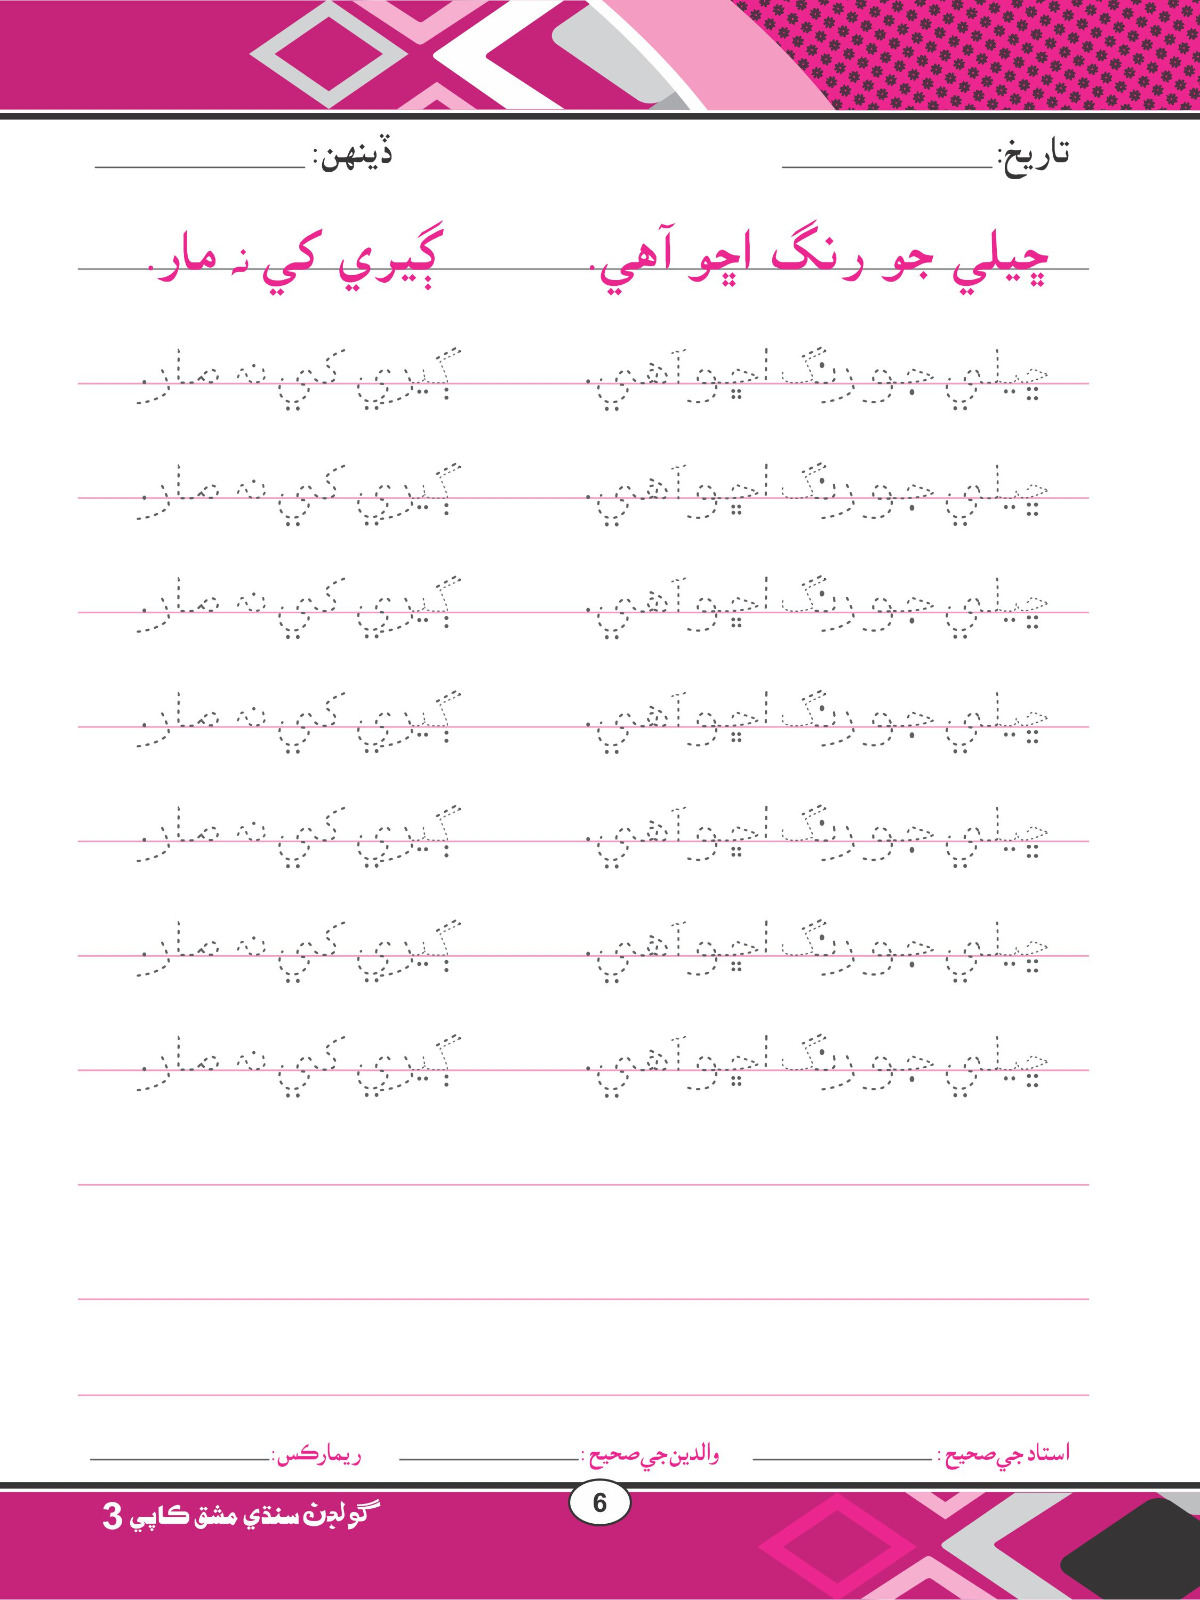 تاريخ: ڏينهن:
ڇيلي جو رنگ اڇو آهي. ڳيري کي نہ مار.
ڇيلي جو رنگ اڇو آهي. ڳيري کي نہ مار.
ڇيلي جو رنگ اڇو آهي. ڳيري کي نہ مار.
ڇيلي جو رنگ اڇو آهي. ڳيري کي نہ مار.
ڇيلي جو رنگ اڇو آهي. ڳيري کي نہ مار.
ڇيلي جو رنگ اڇو آهي. ڳيري کي نہ مار.
ڇيلي جو رنگ اڇو آهي. ڳيري کي نہ مار.
ڇيلي جو رنگ اڇو آهي. ڳيري کي نہ مار.
استاد جي صحيح: والدين جي صحيح: ريمارڪس:
6
گولڊن سنڌي مشق ڪاپي 3